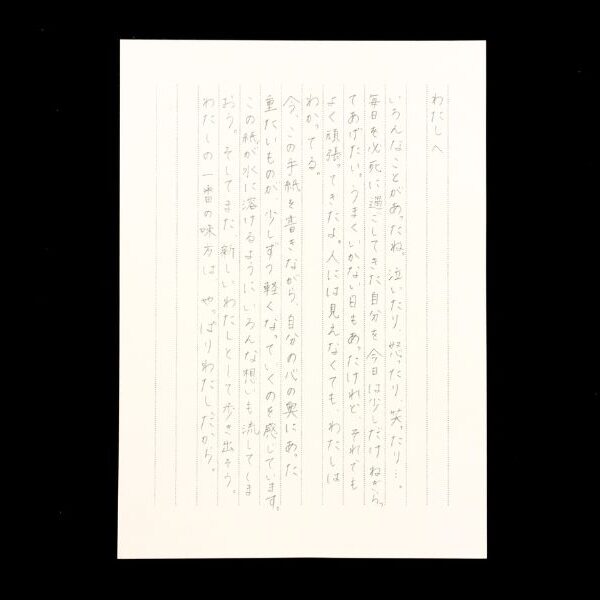 わたしへ
いろんなことがあったね。泣いたり、怒ったり、笑ったり…。
毎日を必死に過ごしてきた自分を、今日は少しだけねぎらっ
てあげたい。うまくいかない日もあったけれど、それでも
よく頑張ってきたよ。人には見えなくても、わたしは
わかってる。
今、この手紙を書きながら、自分の心の奥にあった
重たいものが、少しずつ軽くなっていくのを感じています。
この紙が水に溶けるように、いろんな想いも流してしま
おう。そしてまた、新しいわたしとして歩き出そう。
わたしの一番の味方は、やっぱりわたしだから。